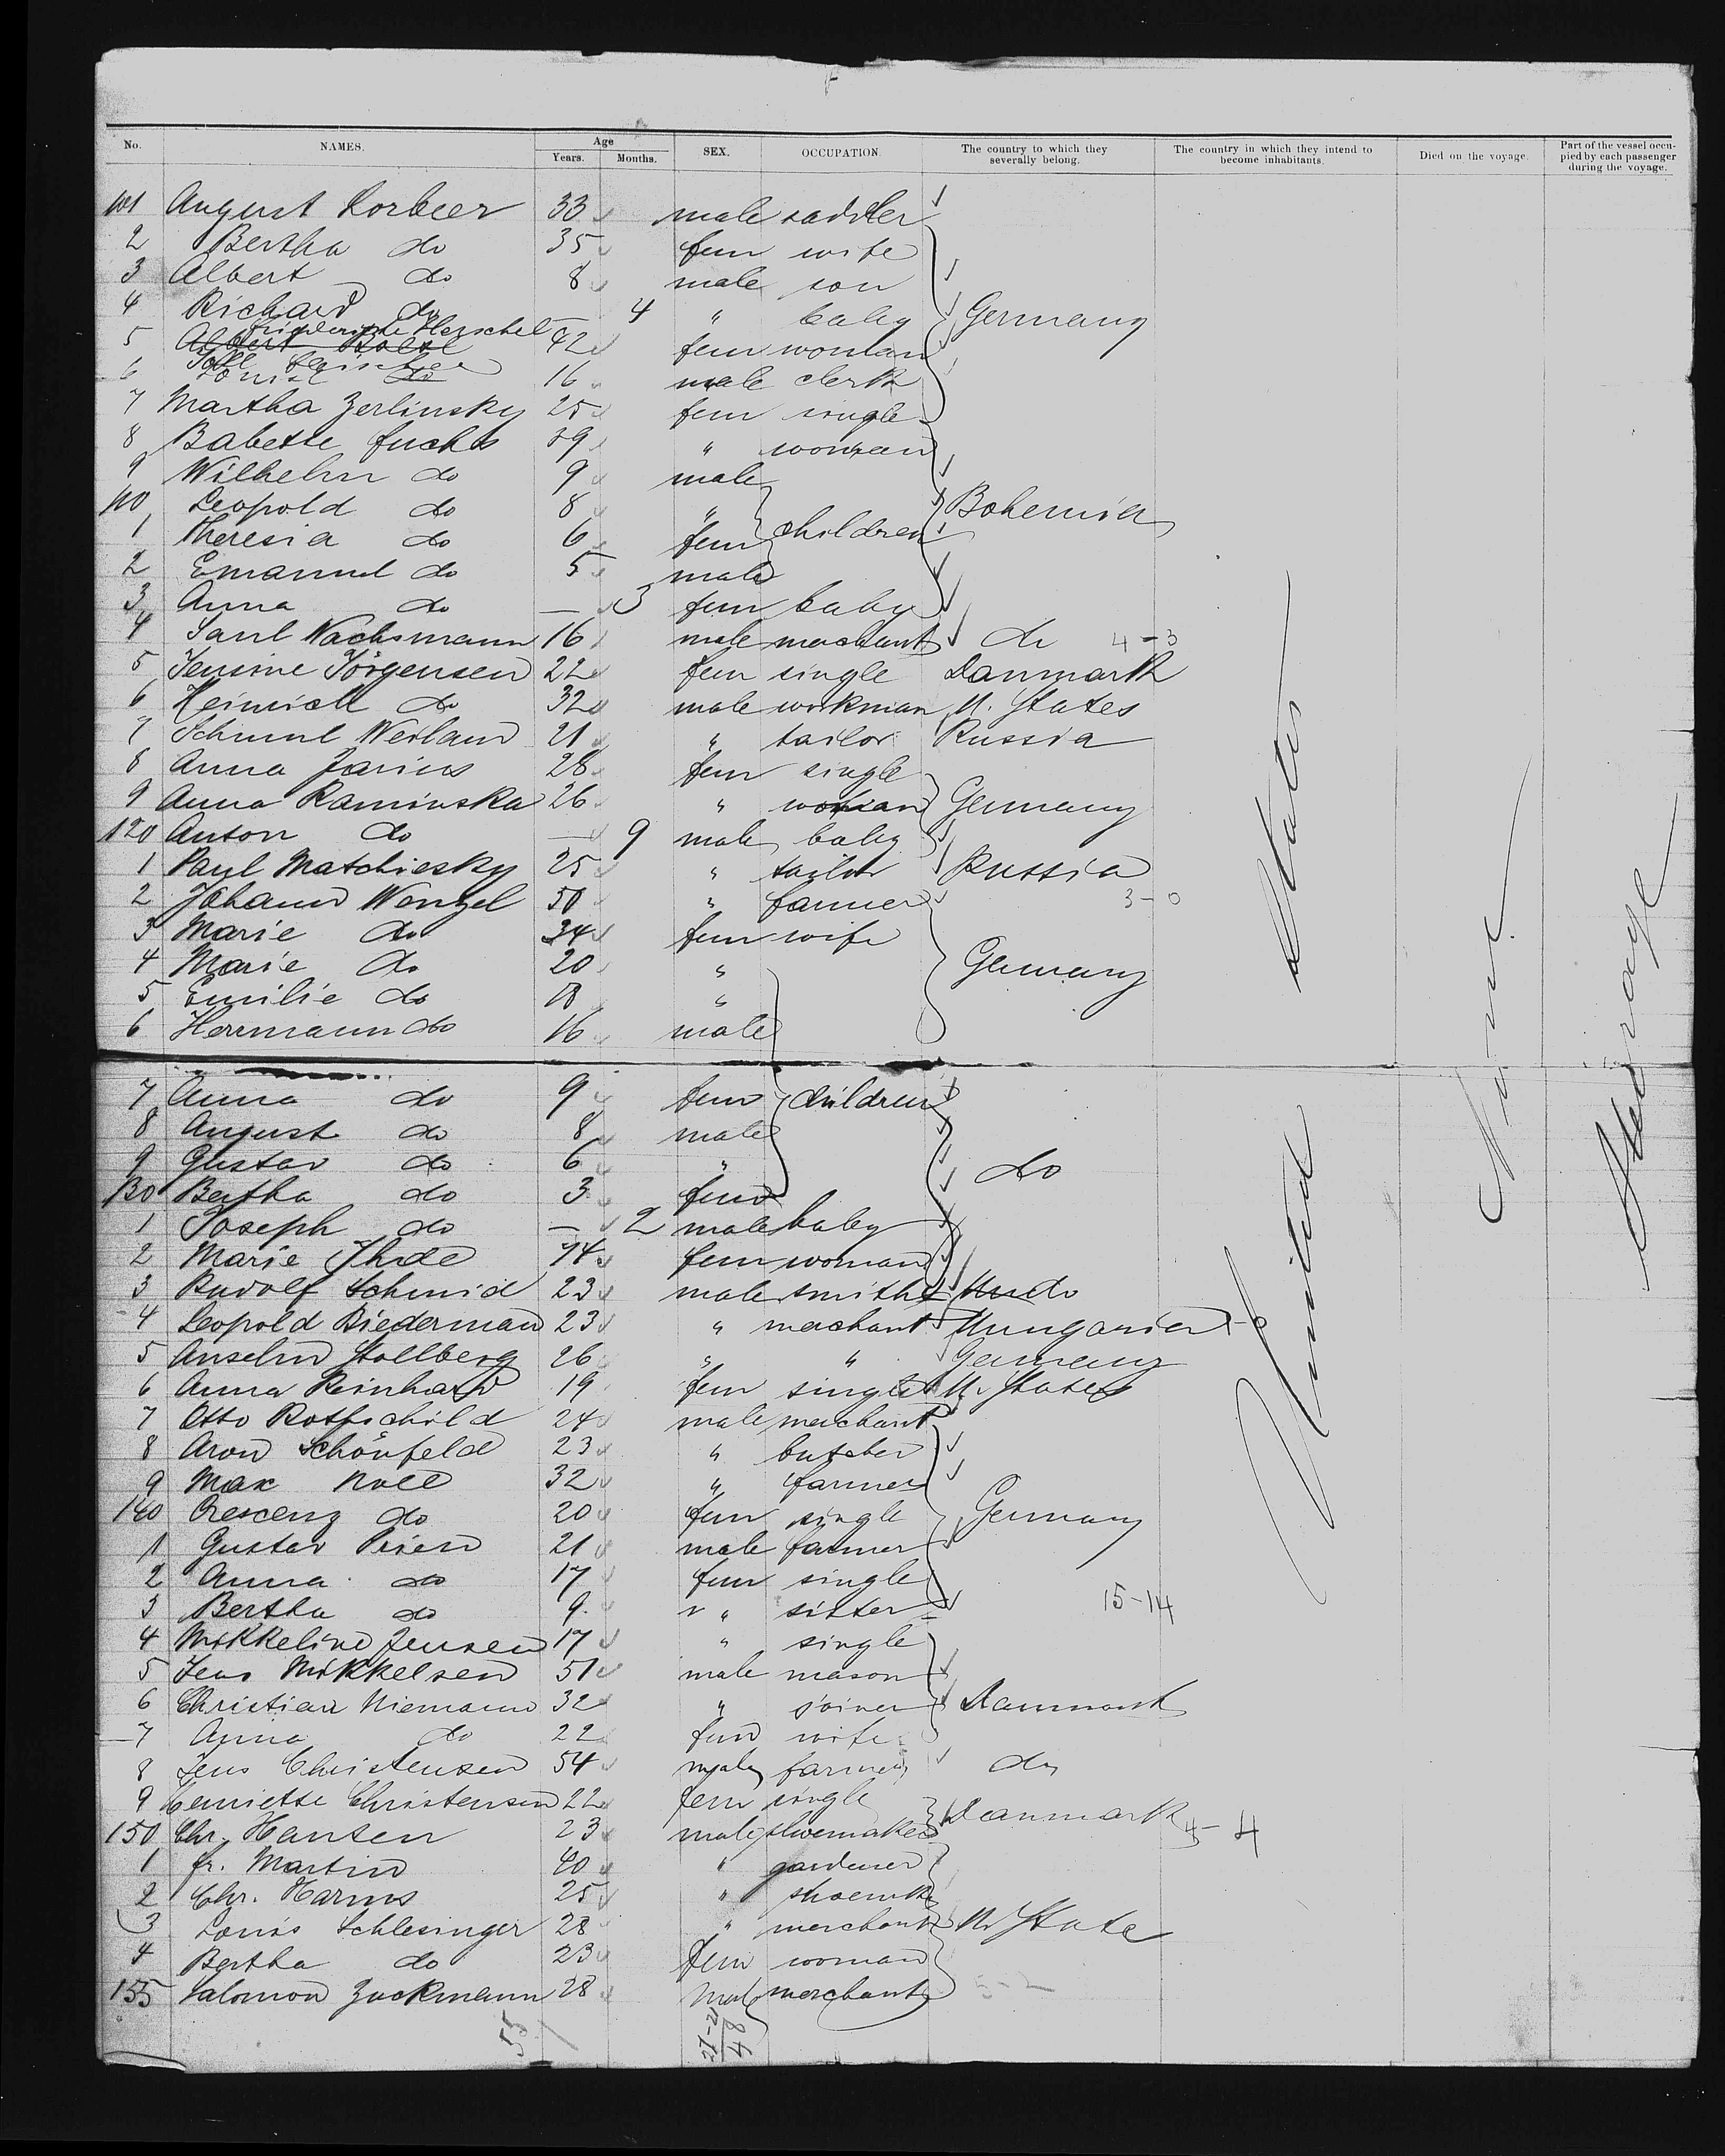 No. NAMES. Age Years. Months. SEX. OCCUPATION. The country to which they severally belong. The country in which they intend to become inhabitants. Died on the voyage. Part of the vessel occupied by each passenger during the voyage.
101 August Lorbeer 33 male saddler
2 Bertha do 35 fem wife
3 Albert do 8 male son
4 Richard do 4 " baby Germany
5 Friederike Herschel 42 fem woman
6 16 male clerk
7 Martha Zerlinsky 25 fem single
8 Babette Fuchs 39 " woman
9 Wilhelm do 9 male
110 Leopold do 8 " children Bohemia
1 Theresia do 6 fem
2 Emanuel do 5 male
3 Anna do — 3 fem baby
4 Saul Wachsmann 16 male merchant do 4-3
5 Jensine Jörgensen 22 fem single Danmark
6 Heinrich do 32 male workman U. States
7 Schmul Weiland 21 " tailor Russia
8 Anna Jarius 28 fem single
9 Anna Kaminska 26 " woman Germany
120 Anton do — 9 male baby
1 Paul Matchiesky 25 " tailor Russia
2 Johann Wenzel 50 " farmer 3-0
3 Marie do 34 fem wife
4 Marie do 20 " Germany
5 Emilie do 18 "
6 Herrmann do 16 male
7 Anna do 9 fem children
8 August do 8 male
9 Gustav do 6 " do
130 Bertha do 3 fem
1 Joseph do — 2 male baby
2 Marie Thode 74 fem woman
3 Rudolf Schmid 23 male smith do
4 Leopold Biederman 23 " merchant Hungarien
5 Anselm Stollberg 26 " " Germany
6 Anna Reinhard 19 fem single U. States
7 Otto Rothschild 24 male merchant
8 Aron Schönfeld 23 " butcher
9 Max Noll 32 " farmer
140 Crescenz do 20 fem single Germany
1 Gustav Prien 21 male farmer
2 Anna do 17 fem single
3 Bertha do 9 " sister 15-14
4 Mikkeline Jensen 17 " single
5 Jens Mikkelsen 51 male mason
6 Christian Niemann 32 " joiner Danmark
7 Anna do 22 fem wife
8 Jens Christensen 54 male farmer do
9 Henriette Christensen 22 fem single Danmark
150 Chr. Hansen 23 male shoemaker 4-4
1 Fr. Martin 40 " gardener
2 Chr. Harms 25 " shoemk
3 Louis Schlesinger 28 " merchant U. State
4 Bertha do 23 fem woman
155 Salomon Zuckmann 28 Male merchant 5-2
55
United States
None
Steerage